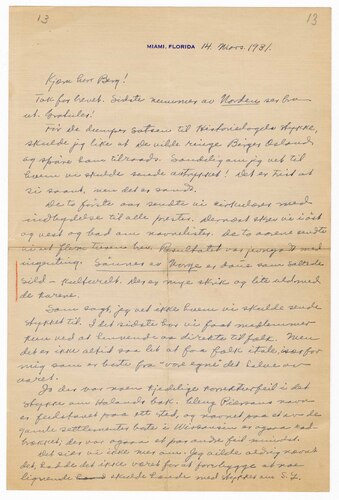 13
13
MIAMI, FLORIDA
14. Mars. 1931.
Kjære herr Berg!
Tak for brevet. Sidste nummer av Norden ser bra
ut. Gratulerer!
Før de dumper Satsen til Historielagets stykke,
skulde jeg like at De vilde ringe Birger Osland
og spørre ham tilraads. Sandelig om jeg vet til
hvem vi skulde sende avtrykket! Det er trist at
si saant, men det er sandt.
De to første aar sendte vi cirkulærer med
indbydelse til alle prester. Dernæst skrev vi i øst
og vest og bad om navnelister. De to aarene sendte
vi ut flere tusen brev. Resultatet var jevngodt med
ingenting.
er Norge er døie som saltede
sild – kulturelt. Der er mye skrik og lite uld med
de karene.
Som sagt, jeg vet ikke hvem vi skulde sende
stykket til. I det sidste har vi faat medlemmer
kun ved at henvende os direkte til folk. Men
det er ikke altid saa let at faa folk i tale,
mig som er borte fra "vore egne" det halve av
aaret.
Jo der var noen kjedelige korrekturfeil i det
stykke om Helands bok. Cleng Piersons navn
er feilstavet paa ett sted, og navnet paa et av de
gamle settlementer borte i Wisconsin er ogsaa rad-
brækket, der var ogsaa et par andre feil mindst.
Det sies vi ikke mer om. Jeg vilde aldrig nævnt
det, hadde det ikke været for at forebygge at noe
lignende skulde hænde med stykket om S. L.